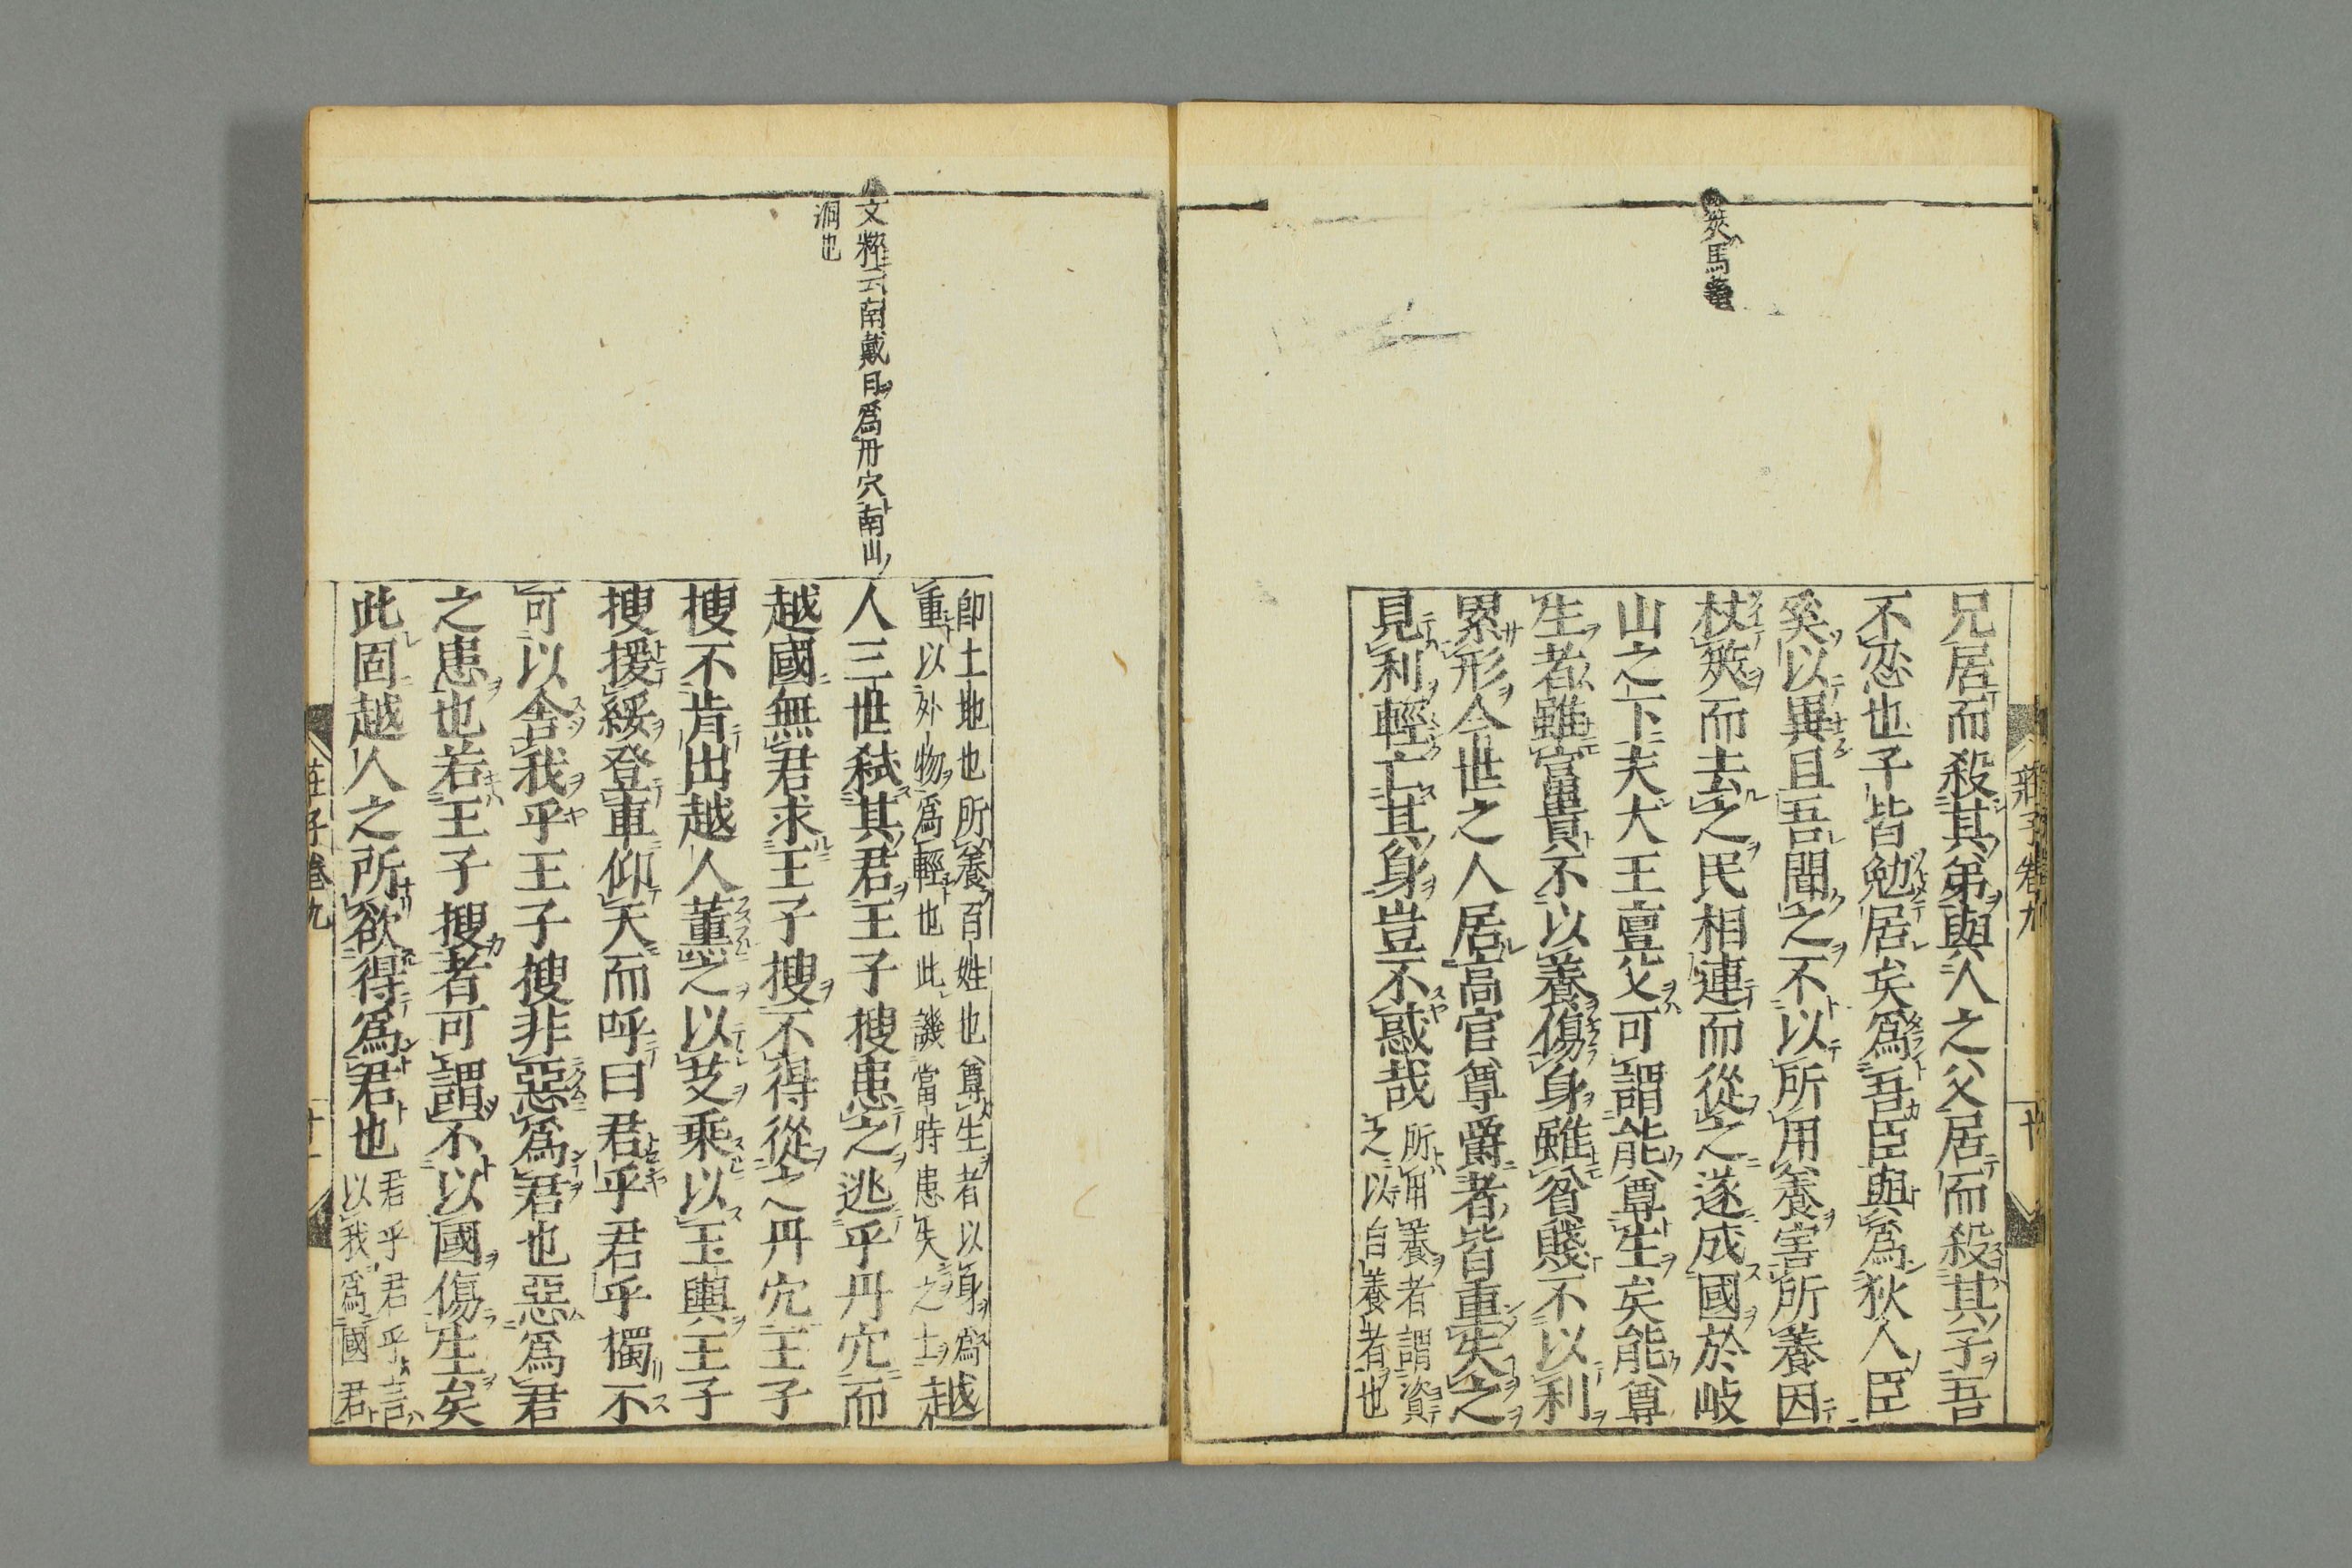 兄居而殺其弟與人之父居而殺其子吾
不忍也子皆勉居矣爲吾臣與爲狄人臣
奚以異且吾聞之不以所用養害所養因
杖筴而去之民相連而從之遂成國於岐
山之下夫大王亶父可謂能尊生矣能尊
生者雖富貴不以養傷身雖貧賤不以利
累形今世之人居高官尊爵者皆重失之
見利輕亡其身豈不惑哉
所用養者謂資
之以自養者也
莊子卷九
十
筴馬
即土地也所養百姓也尊生者以身爲
重以外物爲輕也此譏當時患失之士越
人三世弑其君王子搜患之逃乎丹穴而
越國無君求王子搜不得從之丹穴王子
搜不肯出越人薰之以艾乘以玉輿王子
搜援綏登車仰天而呼曰君乎君乎獨不
可以舍我乎王子搜非惡爲君也惡爲君
之患也若王子搜者可謂不以國傷生矣
此固越人之所欲得爲君也
君乎君乎言
以我爲國君
文粹云南戴日爲丹穴南山
洞也
莊子卷九
十一